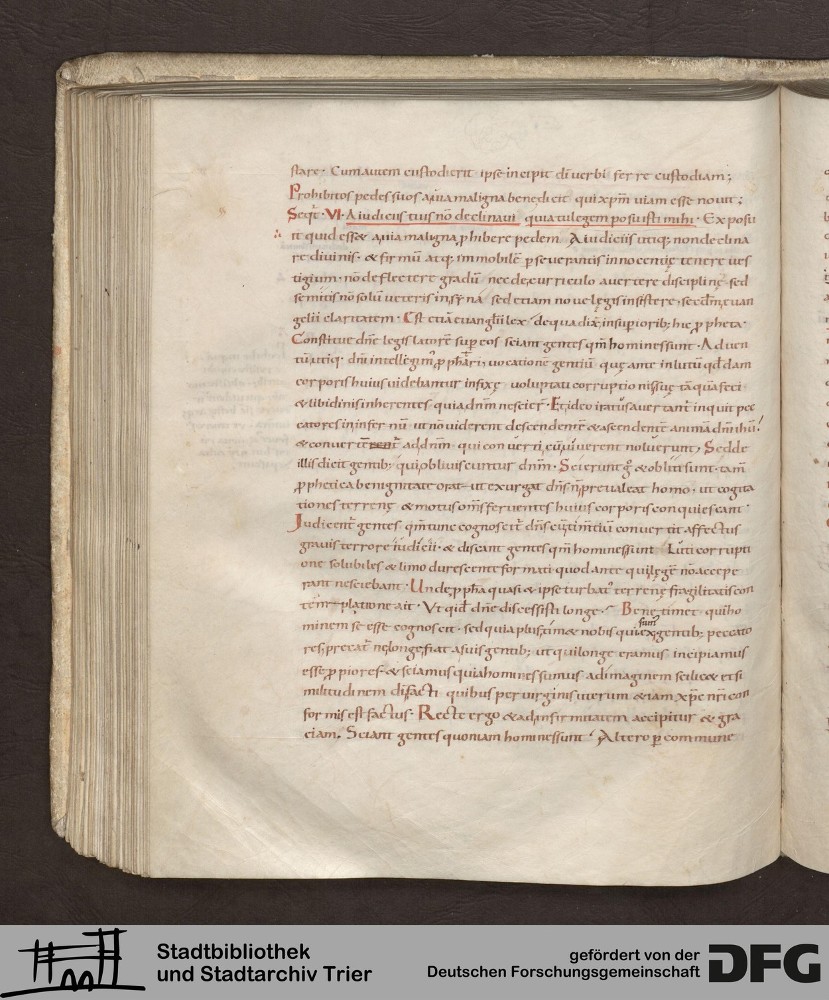 stare · Cum autem custodierit ipse incipit di uerbi ferre custodiam ;
Prohibitos pedes suos a uia maligna benedicit qui xpm uiam esse nouit ;
Seqt · VI · A iudiciis tuis nõ declinaui quia tu legem posuisti mihi · Exposu
it quid ess& a uia maligna phibere pedem A iudiciis utiq; non declina
re diuinis · & firmũ atq; immobilẽ pseuerantis innocentię tenere ues
tigium · nõ deflectere gradũ nec de curriculo auertere disciplinę · sed
semitis nõ solũ ueteris in sẏna sed etiam nouę legis insistere · scđm euan
gelii claritatem · Est etiã euanglii lex de qua dix in superiorib; hic ppheta ·
Constitue dñe legis latorẽ sup eos sciant gentes qm homines sunt · Aduen
tũ utiq · dñi intellegim
corporis huius uidebantur infixę uoluptati
& libidinis inherentes · quia dnm nescier · Et ideo
catores in infernũ · ut nõ uiderent descendent & ascendent
& conuer ad dnm · qui conuerti cũ uiuerent noluerunt , Sed de
illis dicit gentib; qui obliuiscuntur dnm · Scierunt g & obliti sunt · tam
pphetica benignitate orat ut exurgat dñs ñ preualeat homo · ut cogita
tiones terrenę & motus oms feruentes huius corporis conquiescant ·
Iudicent gentes qm tunc cognoscit dñs conuertit affectus
grauis terrore iudicii · & discant gentes qm homines sunt Luti corrupti
one solubiles & limo durescente formati quod ante qui legẽ nõ accepe
rant nesciebant · Unde ppha quasi & ipse turbat terrenę fragilitatis con
templatione ait · Vt qid dñe discessisti longe · Bene timet qui ho
minem se esse cognoscit · sed quia plus tim& nobis qui sum ex gentib; peccato
res precat ne longe fiat a suis gentib; ut qui longe eramus incipiamus
esse ppiores · & sciamus quia homines sumus ad imaginem scilic& et si
militudinem di facti quibus per uirginis uterum etiam xpc nri con
formis est factus · Recte ergo & ad infirmitatem accipitur & gra
ciam . Sciant gentes quoniam homines sunt Altero p commune
Stadtbibliothek
und Stadtarchiv Trier
gefördert von der
Deutschen Forschungsgemeinschaft
DFG